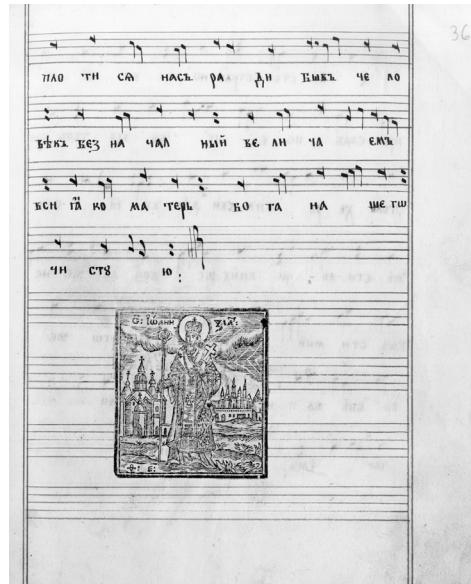 36
пло ти сѧ насъ ра ди бывъ че ло
вѣкъ без на чал ный ве ли ча емъ
вси ꙗ ко ма терь бо га на ше гѡ
чи стꙋ ю :
С: Іѡаннъ ЗЛА: